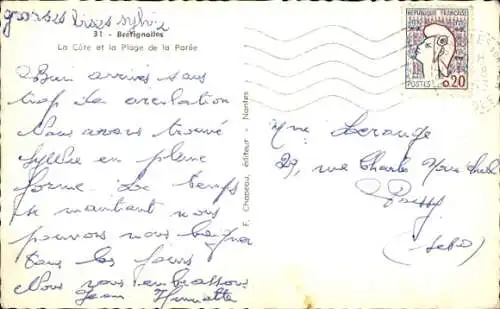 grosses bises sylvie
31 - Brétignolles
La Côte et la Plage de la Parée
Bien arrivés sans
trop de circulation
Nous avons trouvé
Sylvie en pleine
forme. Le temps
se maintient nous
pouvons nous baigner
tous les jours
Nous vous embrassons
Jean Henriette
F. Chabeau, éditeur - Nantes
REPUBLIQUE FRANÇAISE
POSTES 0,20
Mme Lerouge
29, rue Charles
Poissy
(S et O)